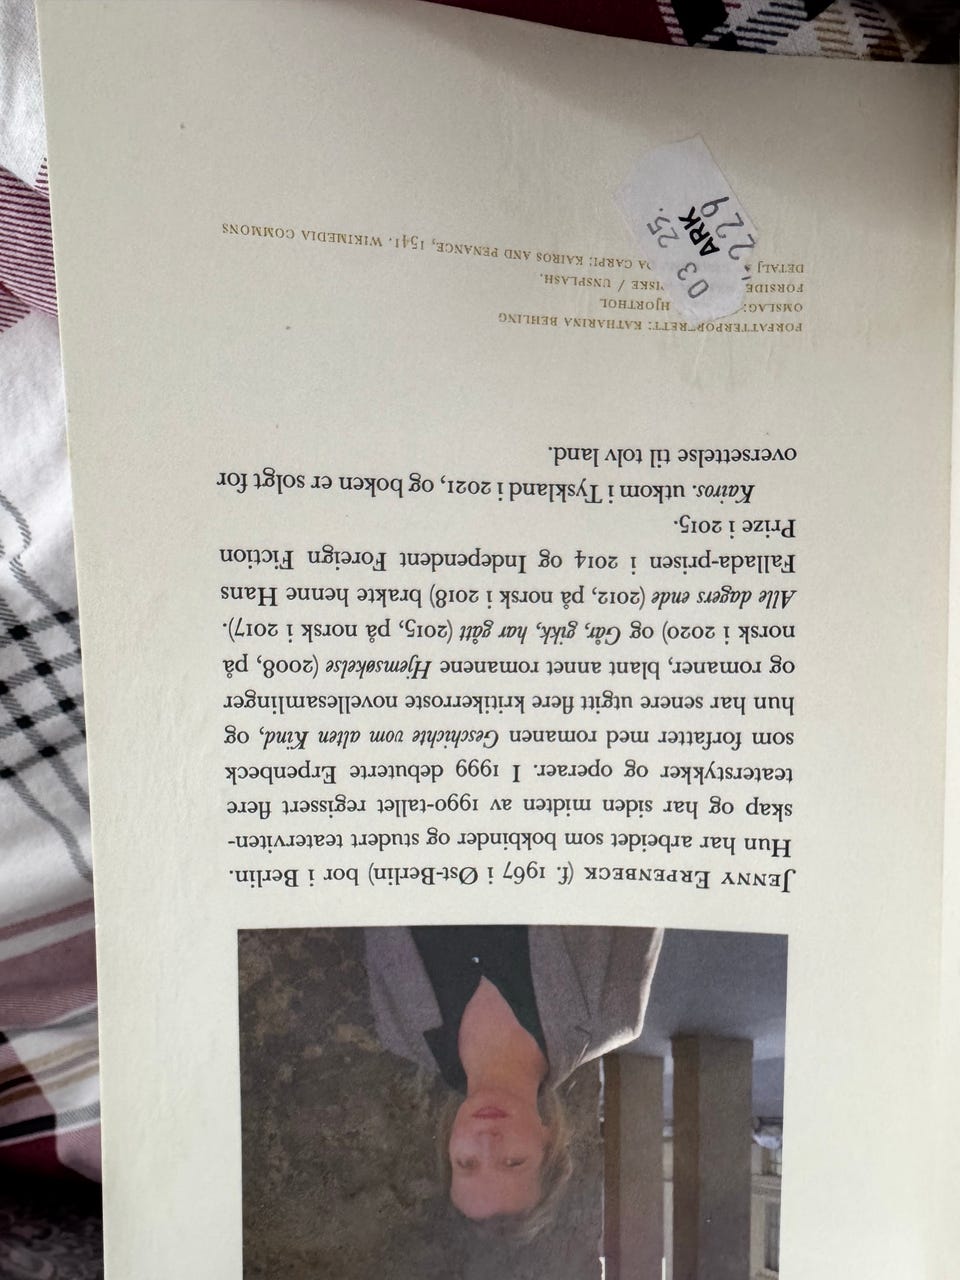 JENNY ERPENBECK (f. 1967 i Øst-Berlin) bor i Berlin.
Hun har arbeidet som bokbinder og studert teaterviten-
skap og har siden midten av 1990-tallet regissert flere
teaterstykker og operaer. I 1999 debuterte Erpenbeck
som forfatter med romanen Geschichte vom alten Kind, og
hun har senere utgitt flere kritikerroste novellesamlinger
og romaner, blant annet romanene Hjemsøkelse (2008, på
norsk i 2020) og Går, gikk, har gått (2015, på norsk i 2017).
Alle dagers ende (2012, på norsk i 2018) brakte henne Hans
Fallada-prisen i 2014 og Independent Foreign Fiction
Prize i 2015.
Kairos. utkom i Tyskland i 2021, og boken er solgt for
oversettelse til tolv land.
FORFATTERPORTRETT: KATHARINA BEHLING
OMSLAG: HJORTHOL
FORSIDE / UNSPLASH.
DETALJ DA CARPI: KAIROS AND PENANCE, 1541. WIKIMEDIA COMMONS
03 25.
ARK
229